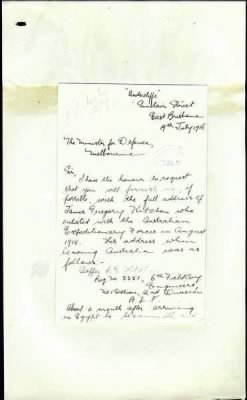 "Undercliffe"
Street
East Brisbane
19th July 1916
The Minister for Defence,
Melbourne
Sir,
I have the honour to request
that you will furnish me, if
possible, with the full address of
James Gregory who
enlisted with the Australian
Expeditionary Forces in August
1915. His address when
leaving Australia was as
follows -
Sapper J. G.
Reg. No 3251, 6th Field Coy
Engineers,
2nd Division
A. I. F.
About a month after arriving
in Egypt he